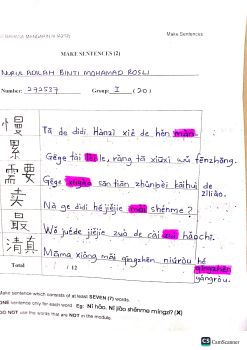 Make Sentences
MAKE SENTENCES (2)
NURUL ADILAH BINTI MOHAMAD ROSLI
Number: 272537 Group: I (20)
慢 Tā de dìdi Hànzì xiě de hěn màn.
累 Gēge tài lèi le, ràng tā xiūxi wǔ fēnzhōng.
需要 Gēge xūyào sān tiān zhǔnbèi kāihuì de zīliào.
卖 Nà ge dìdi hé jiějie mài shénme?
最 Wǒ juéde jiějie, zuò de cài zuì hǎochī.
清真 Māma xiǎng mǎi qīngzhēn niúròu hé qīngzhēn yángròu.
Total / 12
Make sentence which consists of at least SEVEN (7) words.
ONE sentence only for each word. Eg: Nǐ hǎo, nǐ jiào shénme míngzi? (X)
DO NOT use the words that are in the module.
CS CamScanner